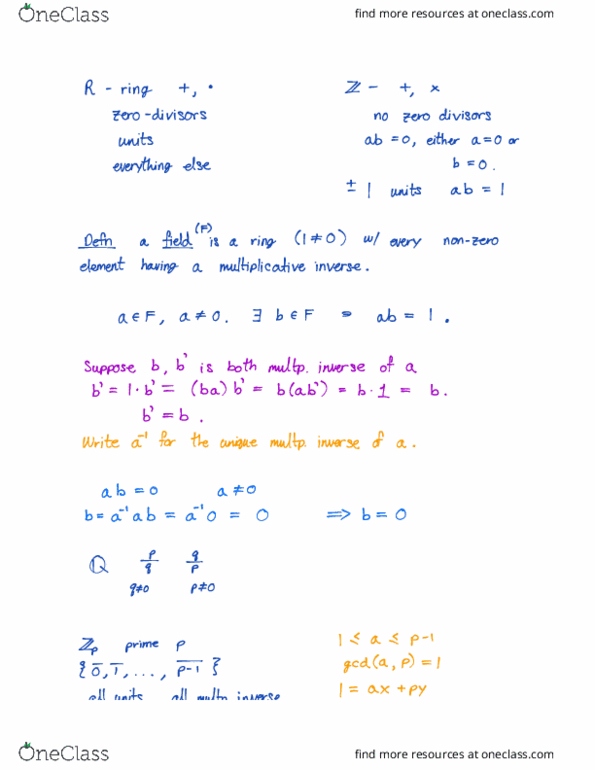 OneClass
find more resources at oneclass.com
R - ring +, ·
zero-divisors
units
everything else
ℤ - +, ×
no zero divisors
ab = 0, either a = 0 or
b = 0.
± 1 units ab = 1
Defn a field (F) is a ring (1 ≠ 0) w/ every non-zero
element having a multiplicative inverse.
a ∈ F, a ≠ 0. ∃ b ∈ F ab = 1.
Suppose b, b' is both multp. inverse of a
b' = 1 · b' = (ba) b' = b(ab') = b · 1 = b.
b' = b.
Write a⁻¹ for the unique multp. inverse of a.
ab = 0 a ≠ 0
b = a⁻¹ab = a⁻¹0 = 0 ⟹ b = 0
ℚ p/q q/p
q≠0 p≠0
ℤₚ prime p
{0̅, 1̅, ..., p-1̅}
all units all multp inverse
1 ≤ a ≤ p-1
gcd(a, p) = 1
1 = ax + py
OneClass
find more resources at oneclass.com